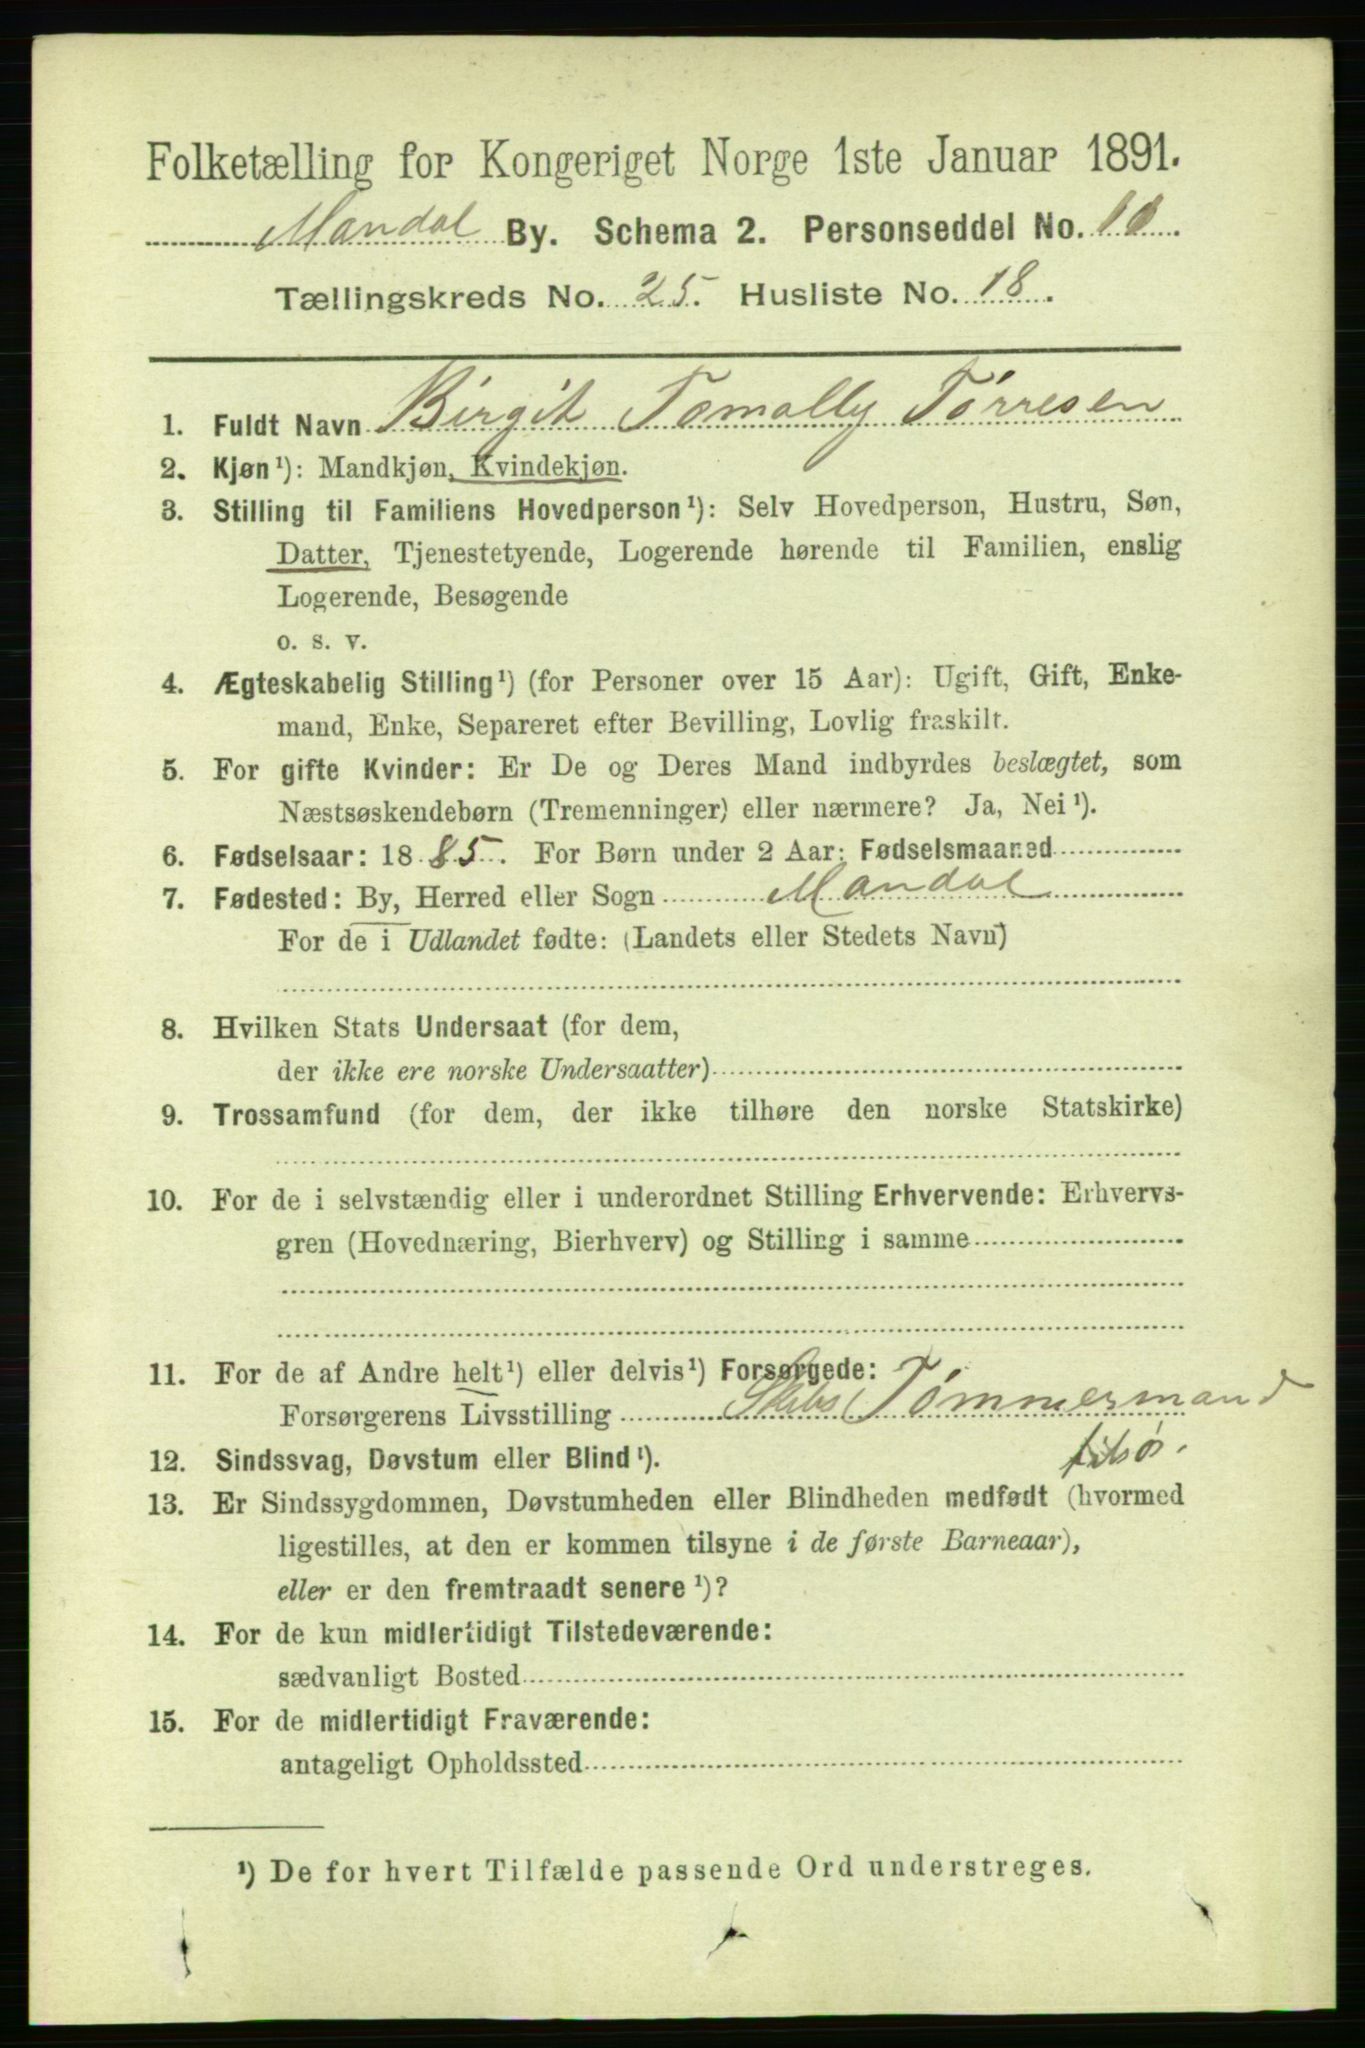 Folketælling for Kongeriget Norge 1ste Januar 1891.
Mandal By. Schema 2. Personseddel No. 10.
Tællingskreds No. 25. Husliste No. 18.
1. Fuldt Navn Birgit Tomally Tørresen
2. Kjøn¹): Mandkjøn, Kvindekjøn.
3. Stilling til Familiens Hovedperson¹): Selv Hovedperson, Hustru, Søn,
Datter, Tjenestetyende, Logerende hørende til Familien, enslig
Logerende, Besøgende
o. s. v.
4. Ægteskabelig Stilling¹) (for Personer over 15 Aar): Ugift, Gift, Enke-
mand, Enke, Separeret efter Bevilling, Lovlig fraskilt.
5. For gifte Kvinder: Er De og Deres Mand indbyrdes beslægtet, som
Næstsøskendebørn (Tremenninger) eller nærmere? Ja, Nei¹).
6. Fødselsaar: 1885. For Børn under 2 Aar: Fødselsmaaned
7. Fødested: By, Herred eller Sogn Mandal
For de i Udlandet fødte: (Landets eller Stedets Navn)
8. Hvilken Stats Undersaat (for dem,
der ikke ere norske Undersaatter)
9. Trossamfund (for dem, der ikke tilhøre den norske Statskirke)
10. For de i selvstændig eller i underordnet Stilling Erhvervende: Erhvervs-
gren (Hovednæring, Bierhverv) og Stilling i samme
11. For de af Andre helt¹) eller delvis¹) Forsørgede:
Forsørgerens Livsstilling Skibs Tømmermand
tilsø.
12. Sindssvag, Døvstum eller Blind¹).
13. Er Sindssygdommen, Døvstumheden eller Blindheden medfødt (hvormed
ligestilles, at den er kommen tilsyne i de første Barneaar),
eller er den fremtraadt senere¹)?
14. For de kun midlertidigt Tilstedeværende:
sædvanligt Bosted
15. For de midlertidigt Fraværende:
antageligt Opholdssted
¹) De for hvert Tilfælde passende Ord understreges.